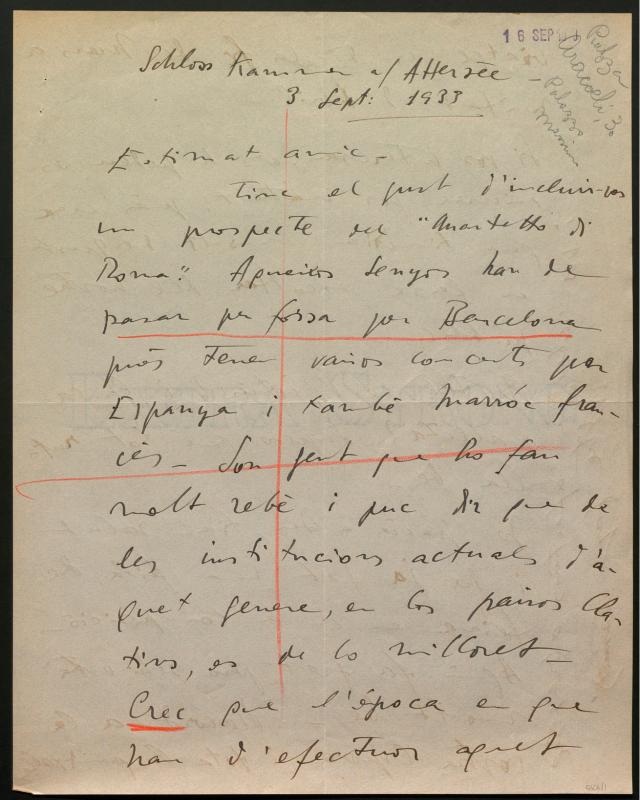 16 SEP
Piazza
Aracoeli, 30
Palazzo
Schloss Kammer a/ Attersee -
3 Sept: 1933
Estimat amic -
Tinc el gust d'incluir-vos
un prospecte del "Quartetto di
Roma". Aqueixos senyors han de
pasar per forsa per Barcelona
pròs tenen varios concerts per
Espanya i també Marròc fran-
cès - Son gent que ho fan
molt rebé i puc dir que de
les institucions actuals d'a-
quet genere, en los paisos lla-
tins, es de lo milloret -
Crec que l'época en què
han d'efectuar aquet